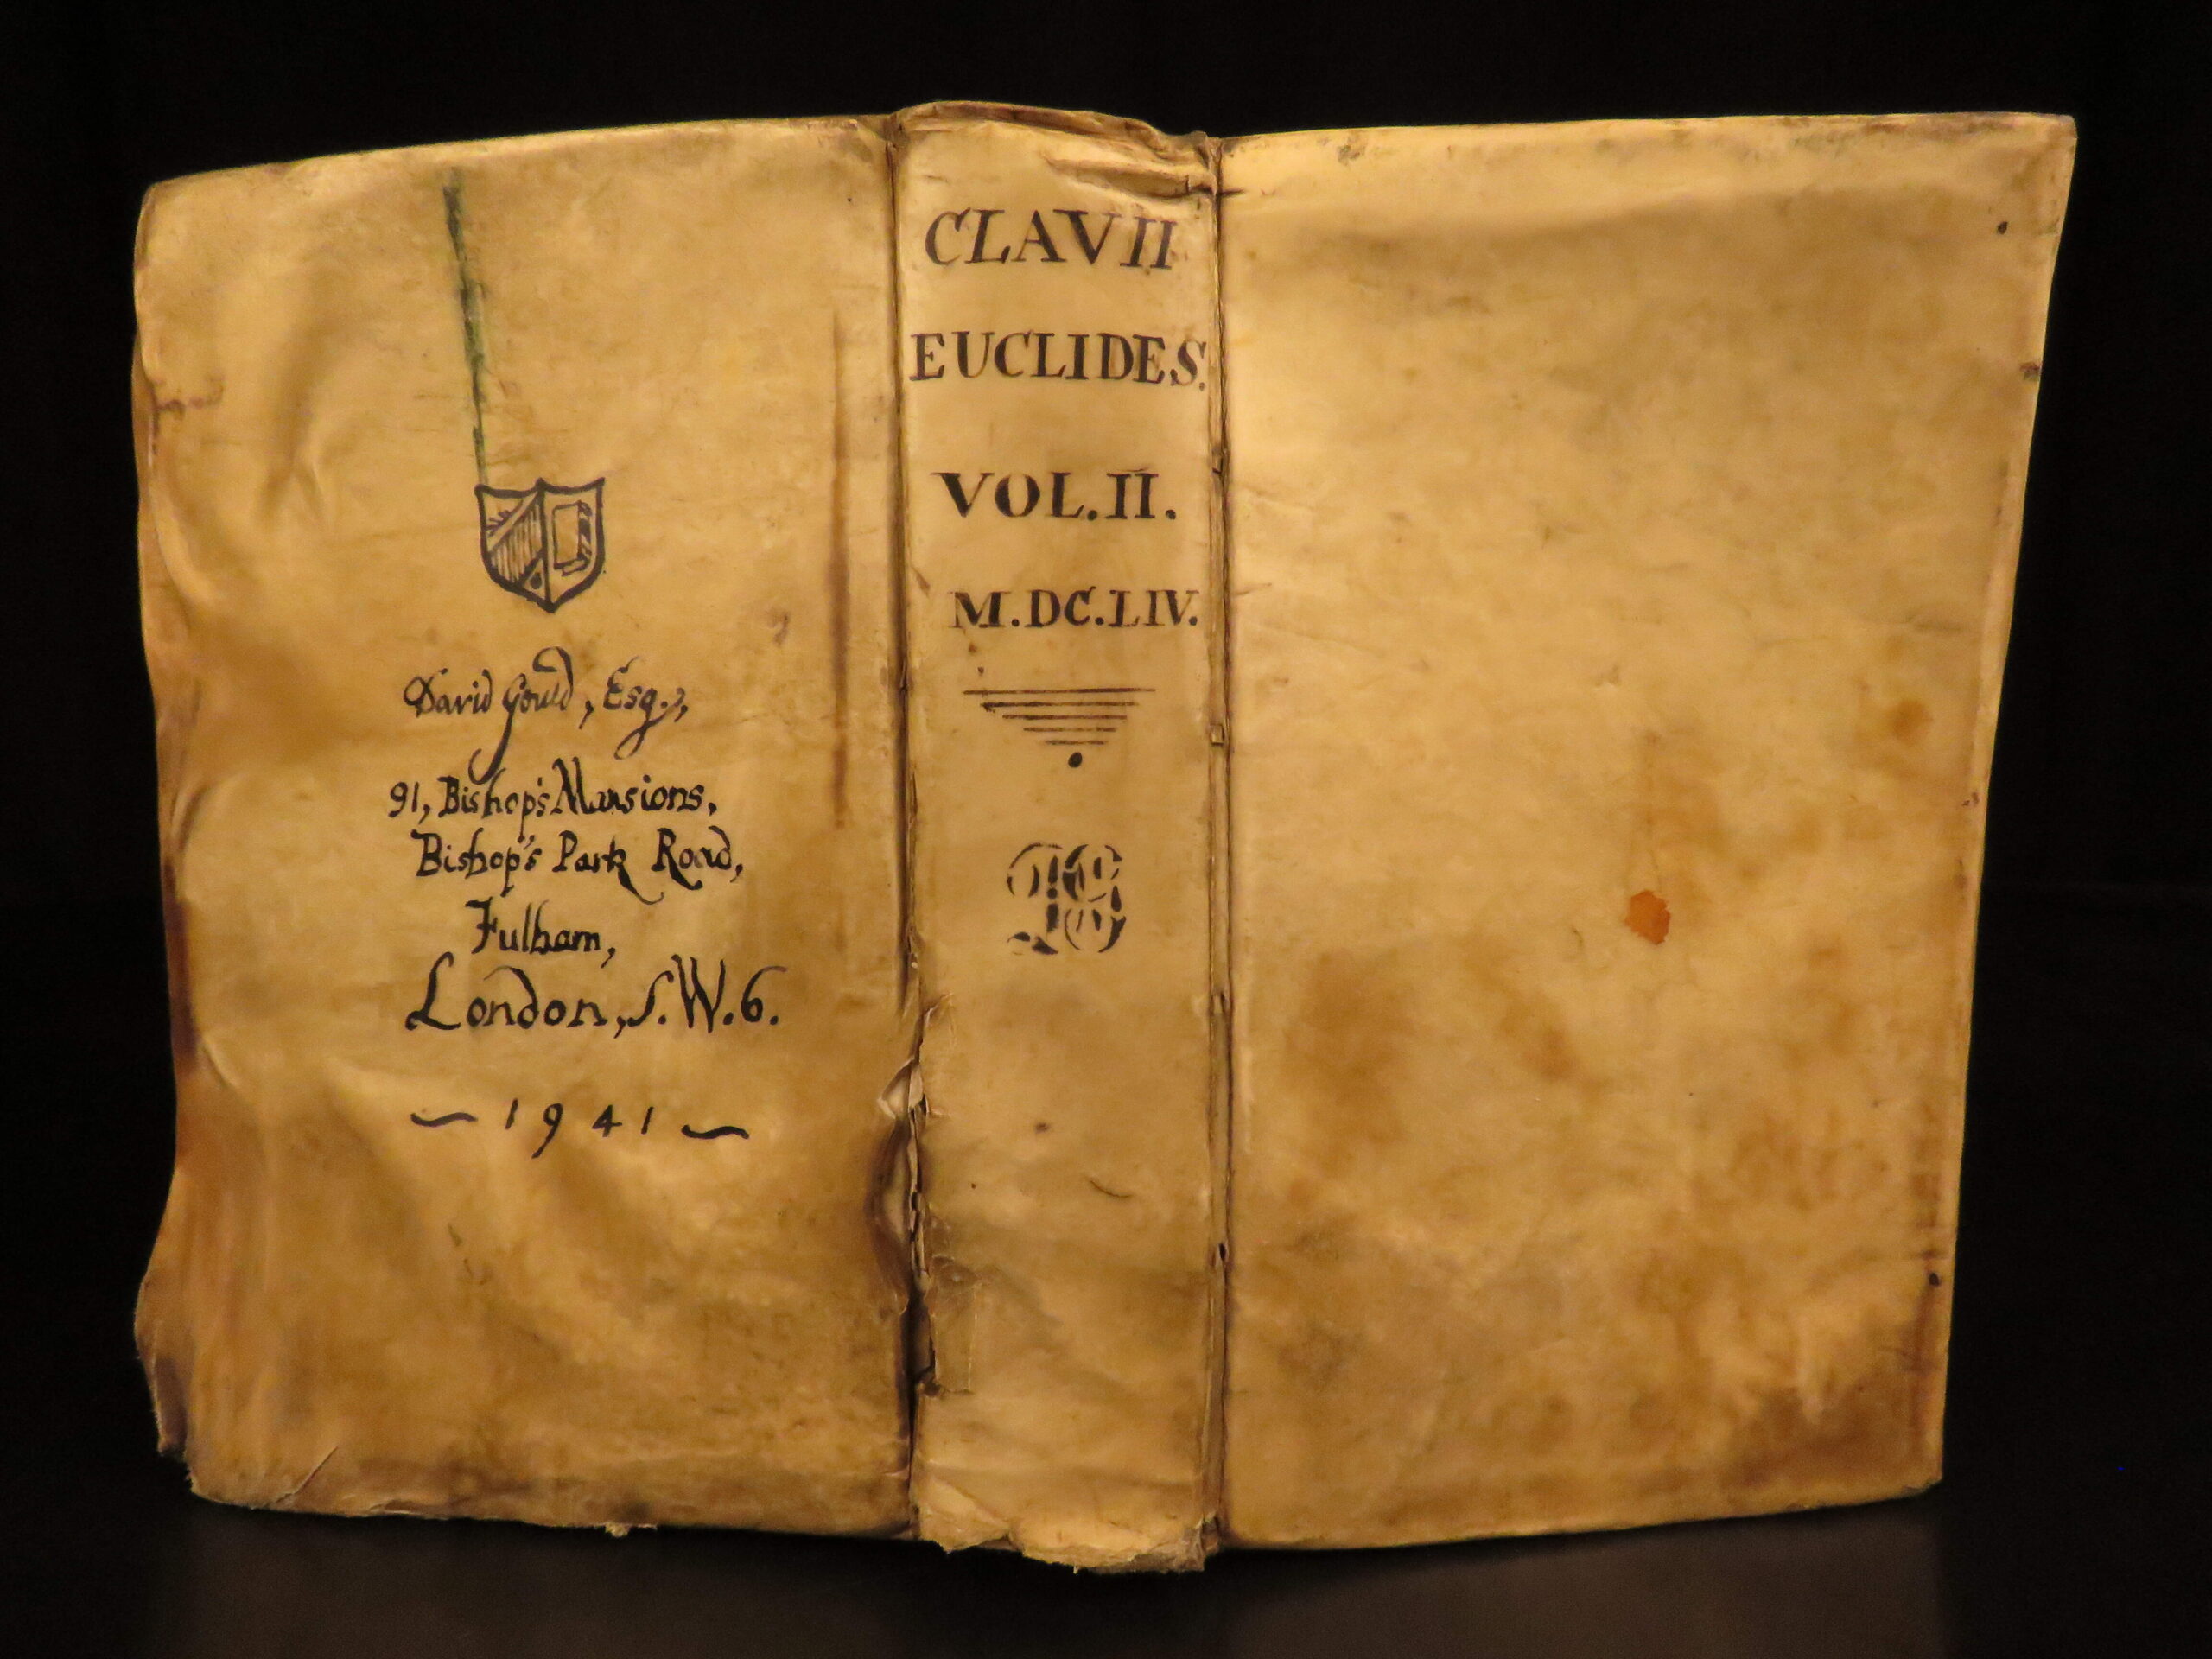 David Gould, Esq.,
91, Bishop's Mansions,
Bishop's Park Road,
Fulham,
London, S.W.6.
~ 1941 ~
CLAVII
EUCLIDES.
VOL.II.
M.DC.LIV.